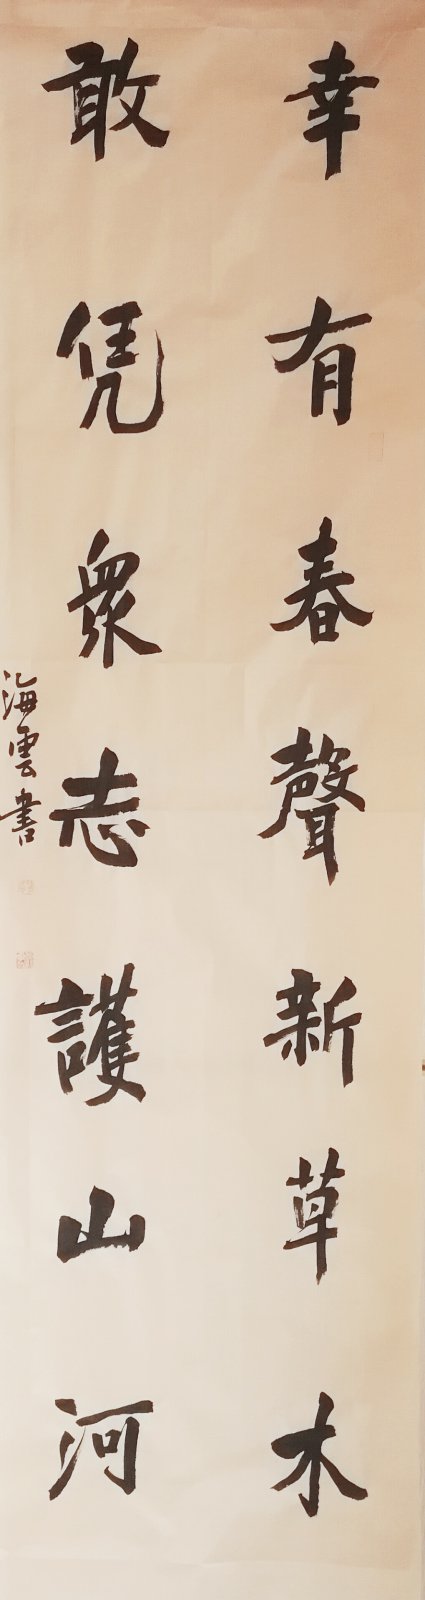 幸有春聲新草木
敢凭衆志護山河
海雲書